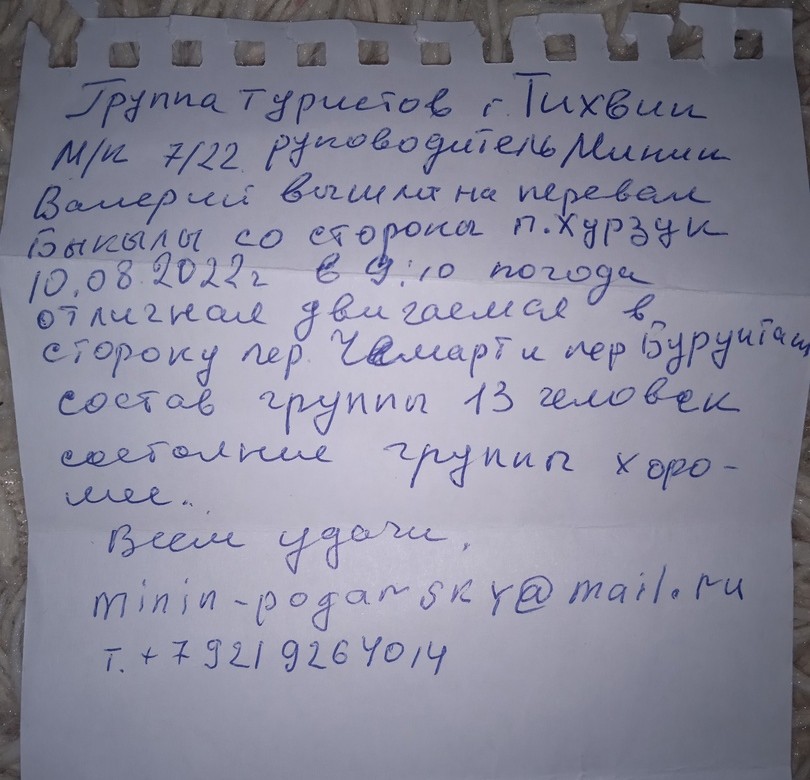 Группа туристов г. Тихвин
М/К 7/22 руководитель Минин
Валерий вышли на перевал
Быкылы со стороны п. Хурзук
10.08.2022г в 9:10 погода
отличная двигаемся в
сторону пер. Чемарт и пер Бурунташ
состав группы 13 человек
состояние группы хоро-
шее..
Всем удачи.
minin-pogarsky@mail.ru
т. +7 921 926 4014